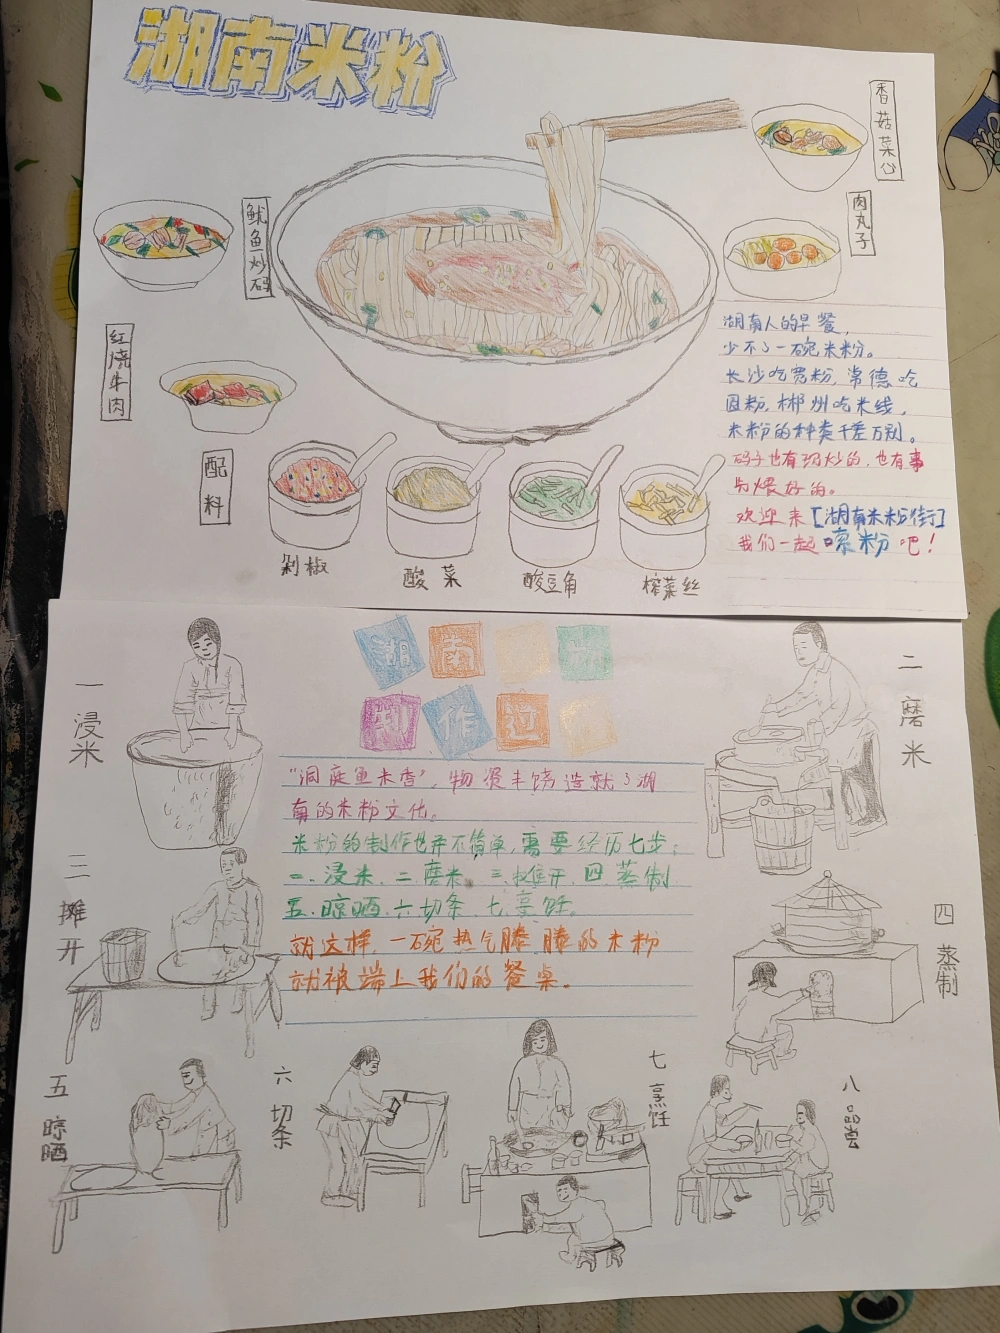 湖南米粉
香菇菜心
肉丸子
鱿鱼炒码
红烧牛肉
配料
剁椒
酸菜
酸豆角
榨菜丝
湖南人的早餐，
少不了一碗米粉。
长沙吃宽粉，常德吃
圆粉，郴州吃米线，
米粉的种类千差万别。
码子也有现炒的，也有事
先煨好的。
欢迎来【湖南米粉街】
我们一起嗦粉吧！
湖南
制作过
一浸米
二磨米
三摊开
四蒸制
五晾晒
六切条
七烹饪
八品尝
“洞庭鱼米香”，物资丰饶造就了湖
南的米粉文化。
米粉的制作也并不简单，需要经历七步：
一.浸米.二.磨米.三.摊开.四.蒸制
五.晾晒.六.切条.七.烹饪。
就这样，一碗热气腾腾的米粉
就被端上我们的餐桌。